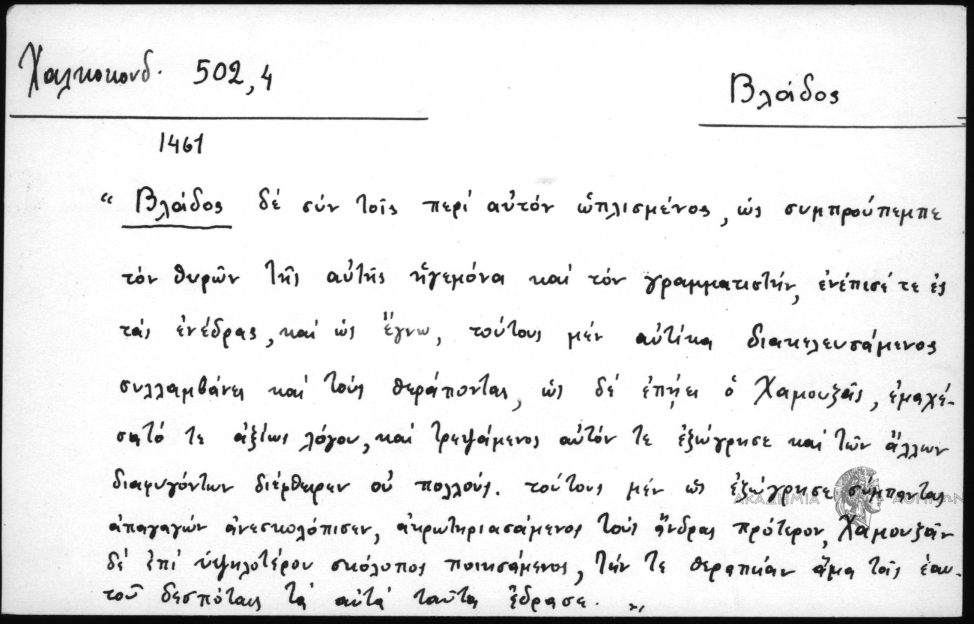 Χαλκοκονδ. 502,4
Βλάδος
1461
“ Βλάδος δέ σύν τοῖς περί αὐτόν ὡπλισμένος, ὡς συμπρούπεμπε
τόν θυρῶν τῆς αὐτῆς ἡγεμόνα καί τόν γραμματιστήν, ἐνέπισέ τε ἐς
τάς ἐνέδρας, καί ὡς ἔγνω, τούτους μέν αὐτίκα διακελευσάμενος
συλλαμβάνει καί τούς θεράποντας, ὡς δέ ἐπῄει ὁ Χαμουζᾶς, ἐμαχέ-
σατό τε ἀξίως λόγου, καί τρεψάμενος αὐτόν τε ἐξώγρησε καί τῶν ἄλλων
διαφυγόντων διέφθειρεν οὐ πολλούς. τούτους μέν ὡς ἐξώγρησε σύμπαντας
ἀπαγαγών ἀνεσκολόπισεν, ἀκρωτηριασάμενος τούς ἄνδρας πρότερον, Χαμουζᾶν
δέ ἐπί ὑψηλοτέρου σκόλοπος ποιησάμενος, τήν τε θεραπείαν ἅμα τοῖς ἑαυ-
τοῦ δεσπόταις τά αὐτά ταῦτα ἔδρασε. „
ΑΚΑΔΗΜΙΑ ΑΘΗΝΩΝ